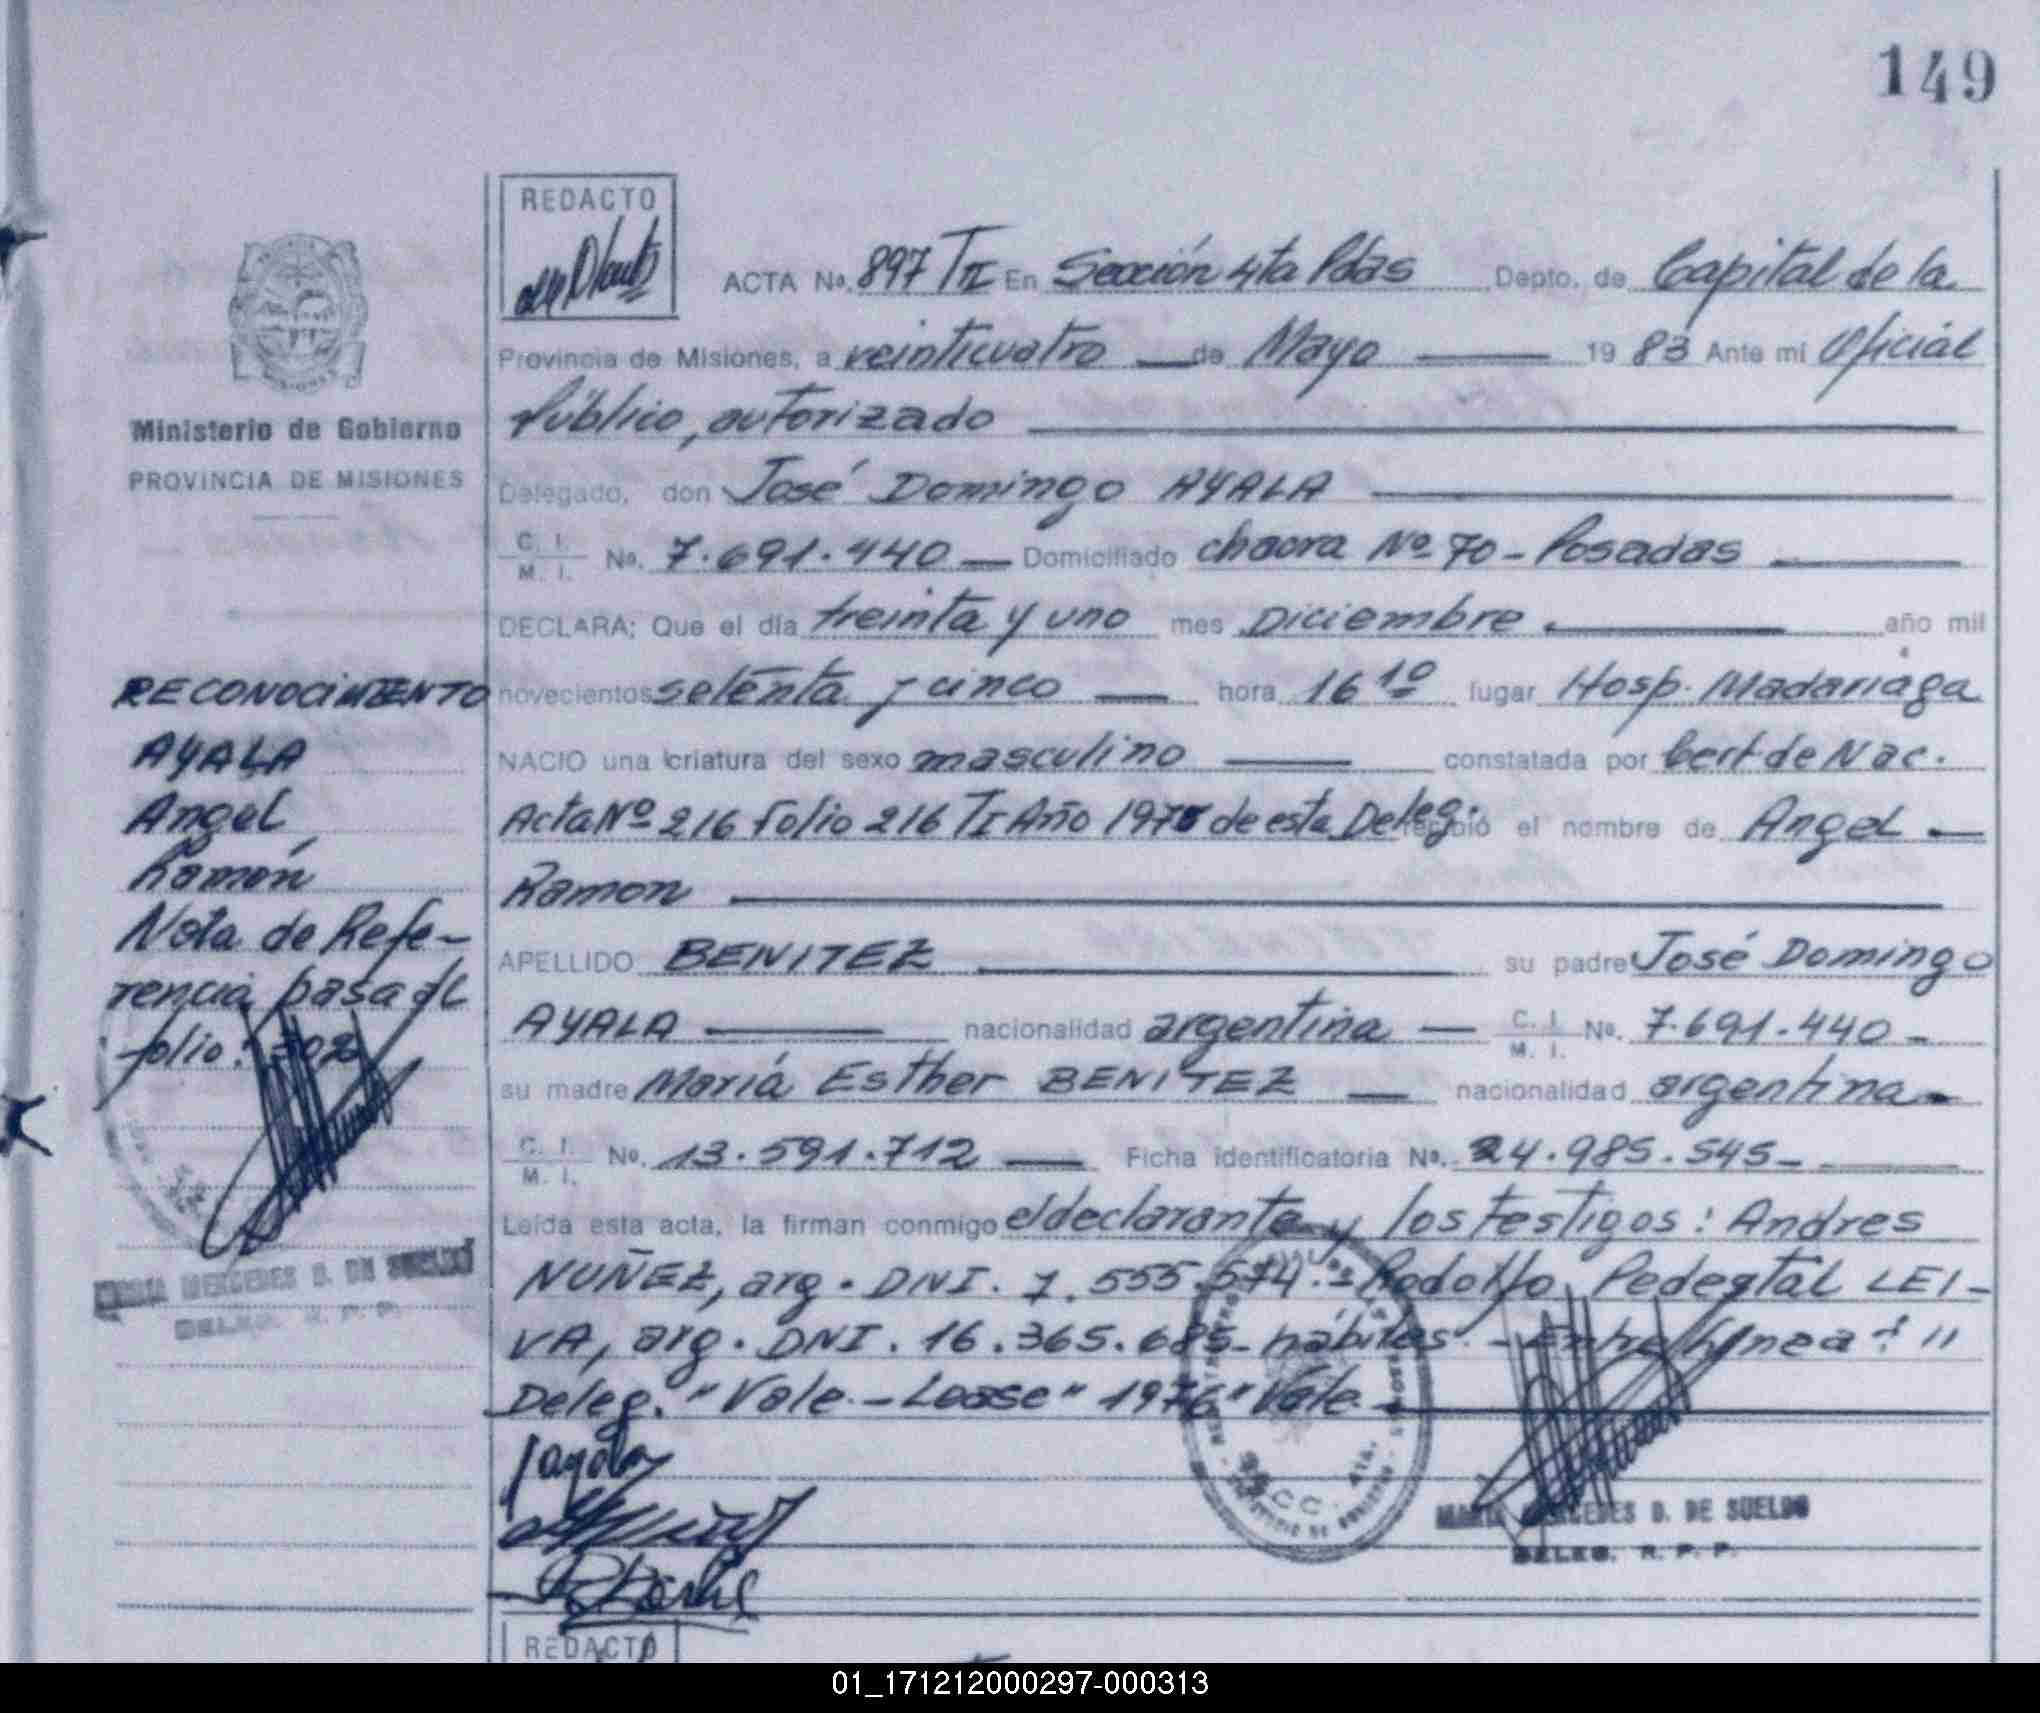 149
REDACTO
ACTA No. 897 TII En Sección 4ta Pdas Depto. de Capital de la
Provincia de Misiones, a veinticuatro de Mayo 19 83 Ante mi Oficial
Público, autorizado
Delegado, don José Domingo AYALA
C. I. M. I. No. 7.691.440 Domiciliado chacra Nº 70 - Posadas
DECLARA; Que el día treinta y uno mes Diciembre año mil
novecientos setenta y cinco hora 16 10 lugar Hosp. Madariaga
NACIO una criatura del sexo masculino constatada por Cert de Nac.
Acta Nº 216 folio 216 TI Año 1976 de esta Deleg. recibió el nombre de Angel
Ramon
APELLIDO BENITEZ su padre José Domingo
AYALA nacionalidad argentina C. I. M. I. No. 7.691.440 -
su madre María Esther BENITEZ nacionalidad argentina
C. I. M. I. No. 13.591.712 Ficha identificatoria No. 24.985.545 -
Leída esta acta, la firman conmigo el declarante y los testigos: Andres
NUÑEZ, arg. DNI. 7.555.574.- Rodolfo Pedestál LEI-
VA, arg. DNI. 16.365.685 - hábiles. - Entre línea: "
Deleg." Vale.- Lease "1976" Vale.
Ministerio de Gobierno
PROVINCIA DE MISIONES
RECONOCIMIENTO
AYALA
Angel
Ramón
Nota de Refe-
rencia pasa al
folio:
MARIA MERCEDES D. DE SUELDO
DELEG. R. P. P.
MARIA MERCEDES D. DE SUELDO
DELEG. R. P. P.
REDACTO
01_171212000297-000313